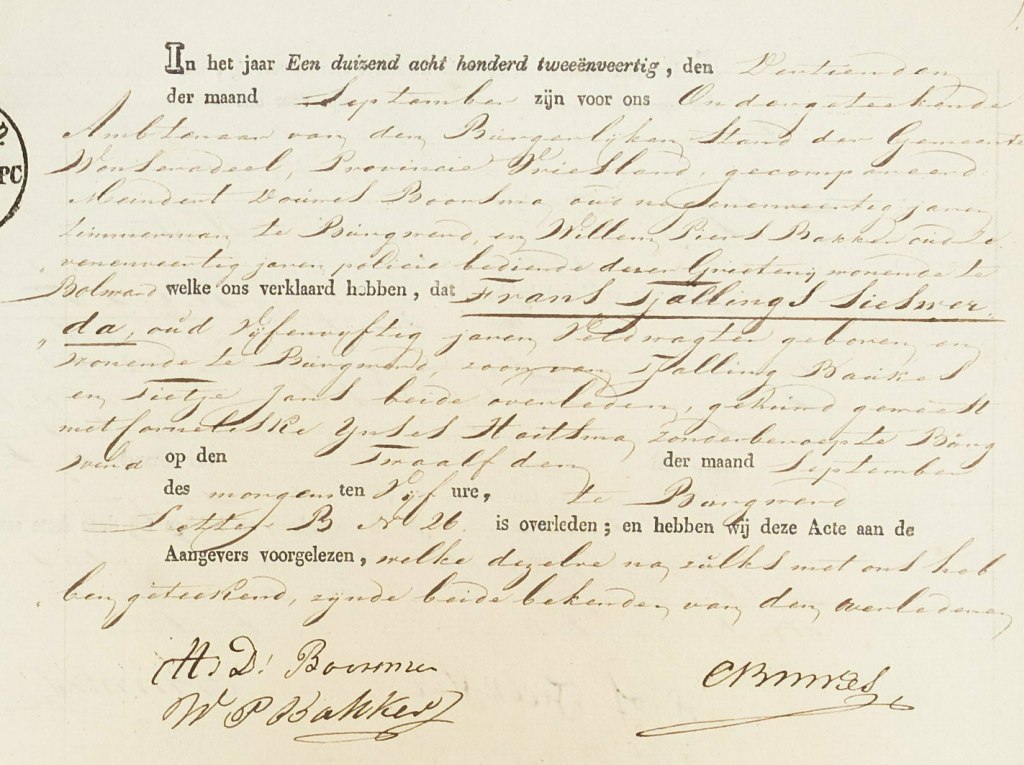 In het jaar Een duizend acht honderd tweeënveertig, den Dertienden
der maand September zijn voor ons Ondergeteekende
Ambtenaar van den Burgerlijken Stand der Gemeente
Wonseradeel, Provincie Vriesland, gecompareerd:
Meindert Douwes Boorsma, oud negenenveertig jaren
timmerman te Burgwerd, en Willem Piers Bakker oud ze
venenveertig jaren policie bediende dezer Grietenij wonende te
Bolsward welke ons verklaard hebben, dat Frans Tjallings Sieswer
da, oud Vijfenvyftig jaren Veldwagter geboren en
wonende te Burgwerd, zoon van Tjalling Baukes
en Tietje Jans beide overleden, gehuwd geweest
met Corneliske Ynses Haitsma, zonder beroep te Burg
werd op den Twaalfden der maand September
des morgens ten Vijf ure, te Burgwerd
Letter B No 26. is overleden; en hebben wij deze Acte aan de
Aangevers voorgelezen, welke dezelve na zulks met ons heb
ben geteekend, zynde beide bekenden van den overledenen
M. D. Boorsma
W P Bakker
PC